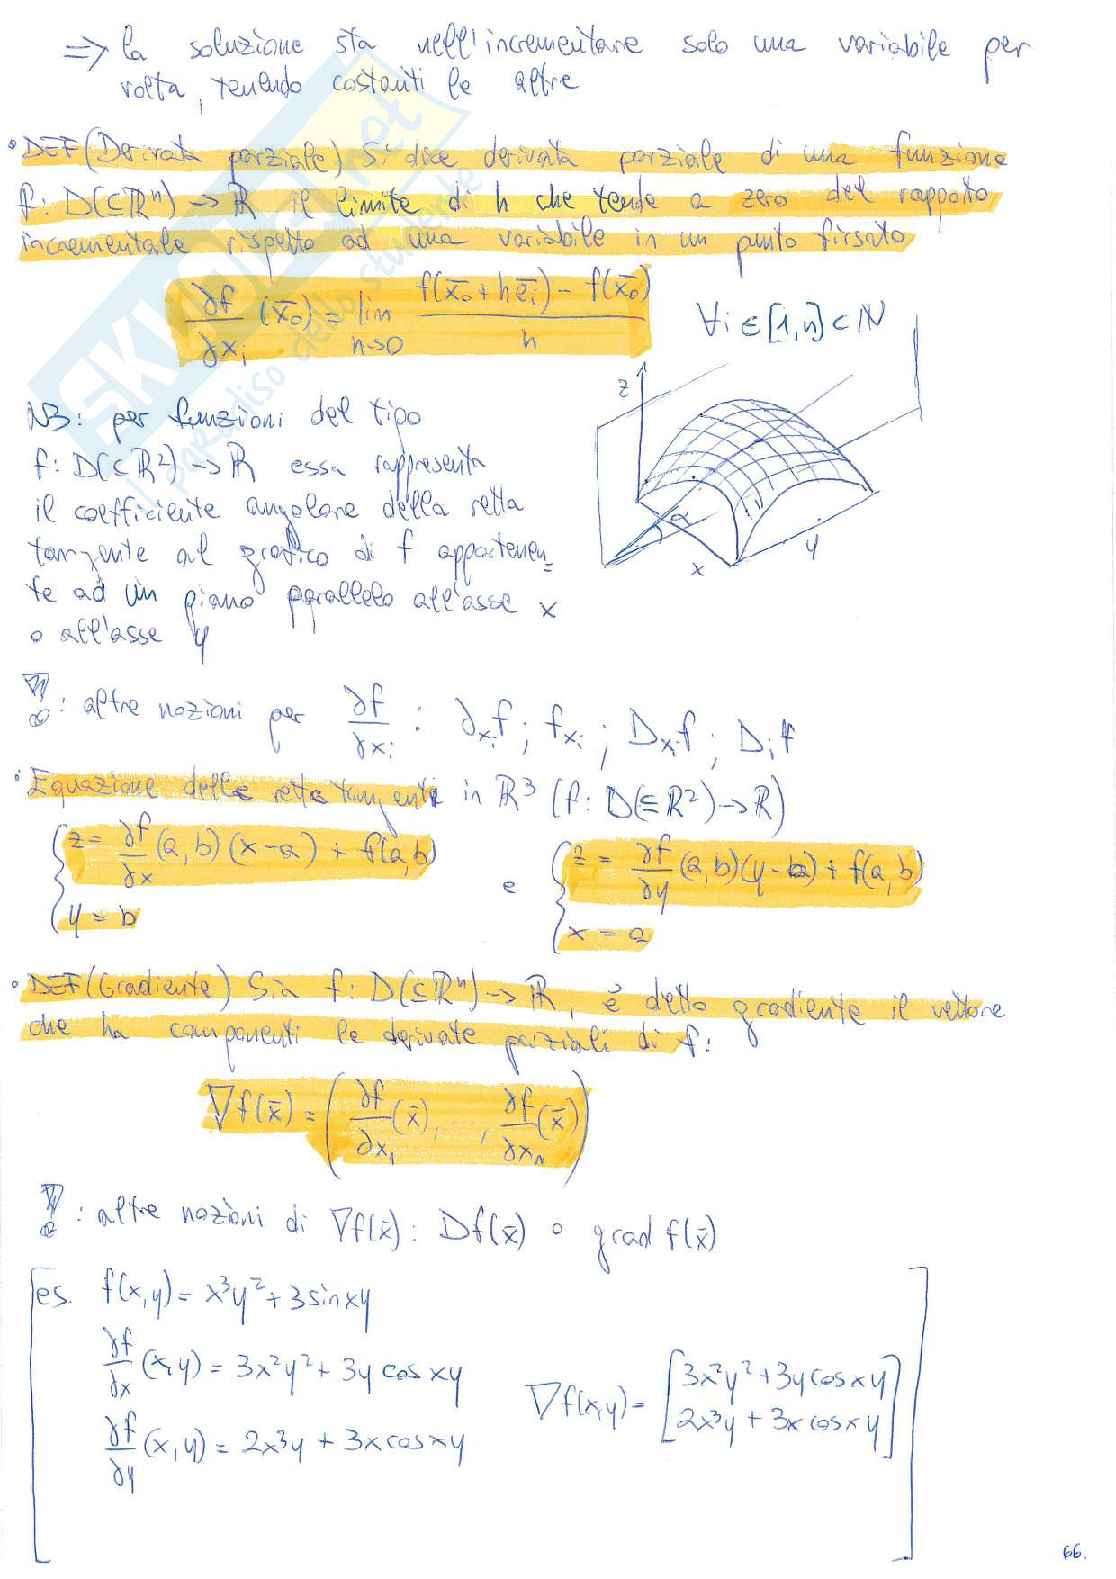 => la soluzione sta nell'incrementare solo una variabile per
volta, tenendo costanti le altre
• DEF (Derivata parziale) Si dice derivata parziale di una funzione
f: D(⊆ℝⁿ) -> ℝ il limite di h che tende a zero del rapporto
incrementale rispetto ad una variabile in un punto fissato
∂f/∂xᵢ (x̄₀) = lim h->0 (f(x̄₀ + h ēᵢ) - f(x̄₀))/h ∀i ∈ [1,n] ⊂ ℕ
z
α
x
y
NB: per funzioni del tipo
f: D(⊂ℝ²) -> ℝ essa rappresenta
il coefficiente angolare della retta
tangente al grafico di f appartenen=
te ad un piano parallelo all'asse x
o all'asse y
: altre nozioni per ∂f/∂xᵢ : ∂xᵢf ; fxᵢ ; Dxᵢf ; Dᵢf
• Equazione delle rette tangenti in ℝ³ (f: D(⊆ℝ²) -> ℝ)
{ z = ∂f/∂x (a,b) (x-a) + f(a,b)
y = b
e
{ z = ∂f/∂y (a,b)(y-b) + f(a,b)
x = a
• DEF (Gradiente) Sia f: D(⊆ℝⁿ) -> ℝ, è detto gradiente il vettore
che ha componenti le derivate parziali di f:
∇f(x̄) = (∂f/∂x₁ (x̄), , ∂f/∂xₙ (x̄))
: altre nozioni di ∇f(x̄): Df(x̄) o grad f(x̄)
es. f(x,y) = x³y² + 3 sin xy
∂f/∂x (x,y) = 3x²y² + 3y cos xy
∂f/∂y (x,y) = 2x³y + 3x cos xy
∇f(x,y) = [3x²y² + 3y cos xy
2x³y + 3x cos xy]
66.
SKUOLA.net
il paradiso dello studente